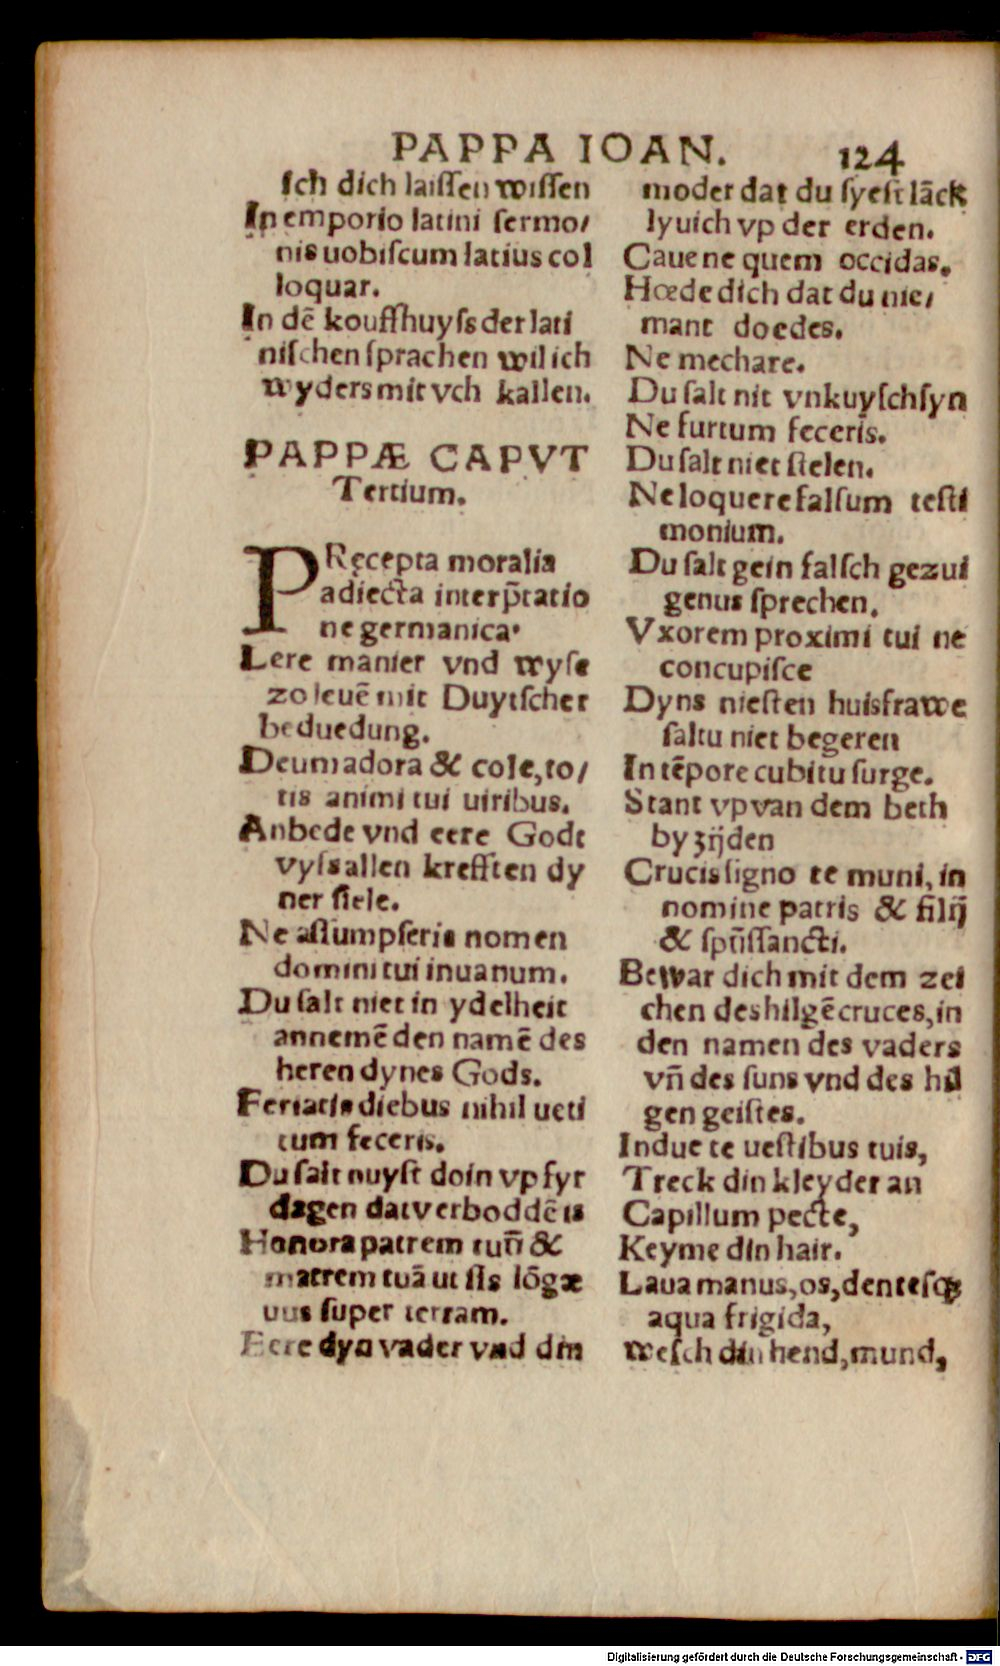 PAPPA IOAN. 124
ſch dich laiſſen wiſſen
In emporio latini ſermo/
nis uobiſcum latius col
loquar.
In dē kouffhuyſs der lati
niſchen ſprachen wil ich
wyders mit vch kallen.
PAPPÆ CAPVT
Tertium.
PRęcepta moralia
adiecta interp̄tatio
ne germanica.
Lere manier vnd wyſe
zo leuē mit Duytſcher
beduedung.
Deum adora & cole, to/
tis animi tui uiribus.
Anbede vnd eere Godt
vyſs allen krefften dy
ner ſiele.
Ne aſſumpſeris nomen
domini tui inuanum.
Du ſalt niet in ydelheit
annemē den namē des
heren dynes Gods.
Feriatis diebus nihil ueti
tum feceris.
Du ſalt nuyſt doin vp fyr
dagen dat verboddē is
Honora patrem tuū &
matrem tuā ut ſis lōgæ
uus ſuper terram.
Eere dyn vader vnd din
moder dat du ſyeſt lāck
lyuich vp der erden.
Caue ne quem occidas.
Hœde dich dat du nie/
mant doedes.
Ne mechare.
Du ſalt nit vnkuyſch ſyn
Ne furtum feceris.
Du ſalt niet ſtelen.
Ne loquere falſum teſti
monium.
Du ſalt gein falſch gezui
genus ſprechen.
Vxorem proximi tui ne
concupiſce
Dyns nieſten huisfrawe
ſaltu niet begeren
In tēpore cubitu ſurge.
Stant vp van dem beth
by zijden
Crucis ſigno te muni, in
nomine patris & filij
& ſpūſſancti.
Bewar dich mit dem zei
chen des hilgē cruces, in
den namen des vaders
vn̄ des ſuns vnd des hil
gen geiſtes.
Indue te ueſtibus tuis,
Treck din kleyder an
Capillum pecte,
Keyme din hair.
Laua manus, os, dentesꝗ;
aqua frigida,
weſch din hend, mund,
Digitalisierung gefördert durch die Deutsche Forschungsgemeinschaft - DFG